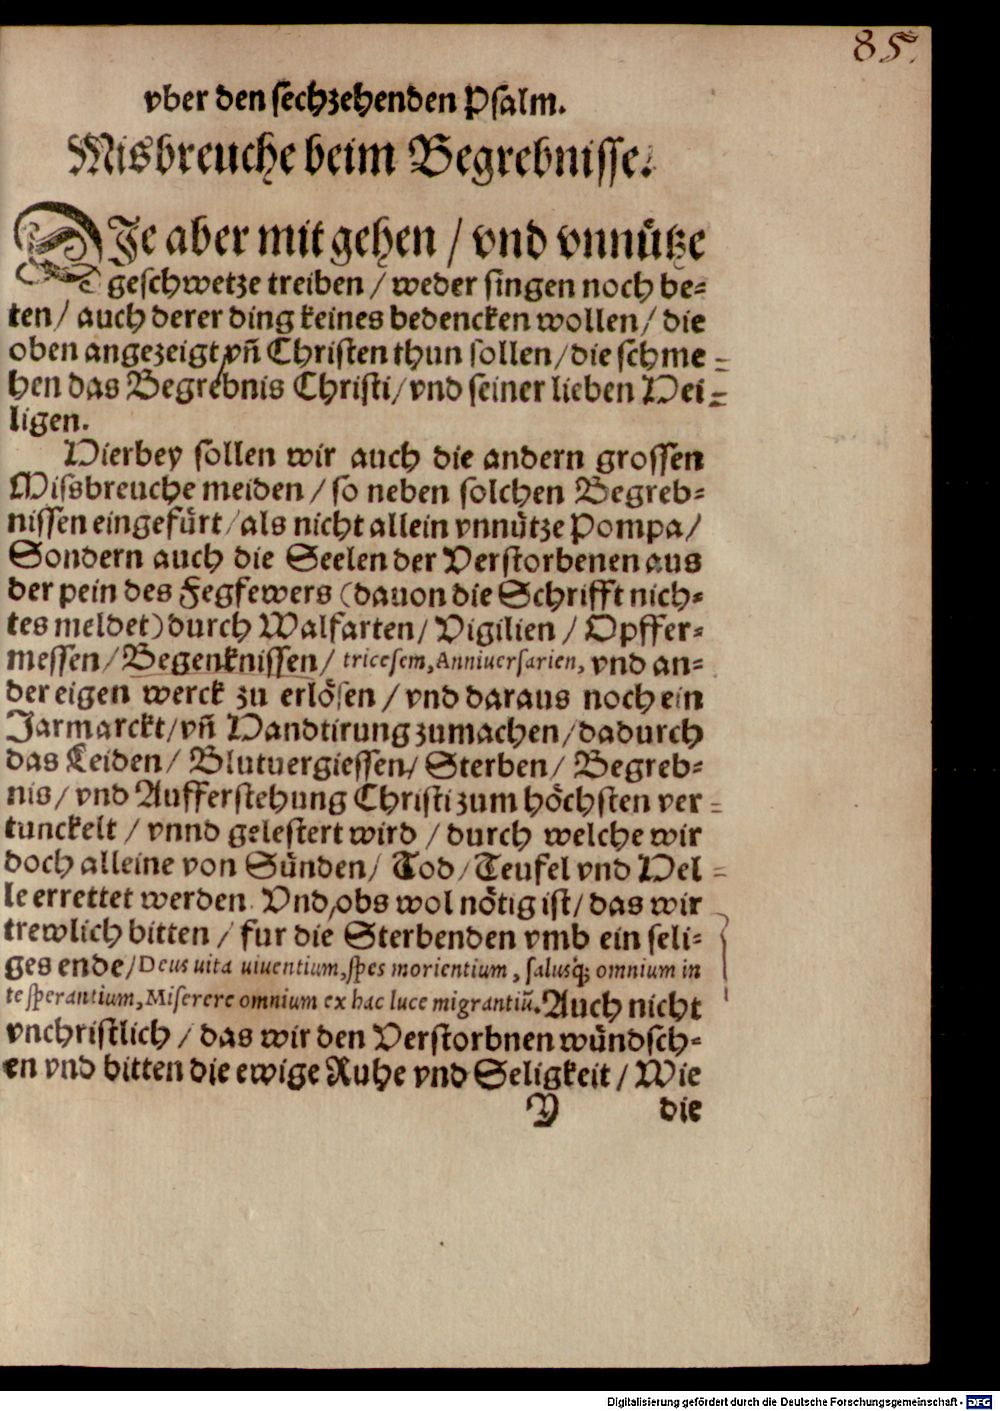 85.
vber den sechzehenden Psalm.
Misbreuche beim Begrebnisse.
DIe aber mit gehen / vnd vnnütze
geschwetze treiben / weder singen noch be-
ten / auch derer ding keines bedencken wollen / die
oben angezeigt, vñ Christen thun sollen / die schme-
hen das Begrebnis Christi / vnd seiner lieben Hei-
ligen.
Hierbey sollen wir auch die andern grossen
Missbreuche meiden / so neben solchen Begreb-
nissen eingefürt / als nicht allein vnnütze Pompa /
Sondern auch die Seelen der Verstorbenen aus
der pein des Fegfewers (dauon die Schrifft nich-
tes meldet) durch Walfarten / Vigilien / Opffer-
messen / Begenknissen / tricesem, Anniuersarien, vnd an-
der eigen werck zu erlösen / vnd daraus noch ein
Jarmarckt / vñ Handtirung zumachen / dadurch
das Leiden / Blutuergiessen / Sterben / Begreb-
nis / vnd Aufferstehung Christi zum höchsten ver-
tunckelt / vnnd gelestert wird / durch welche wir
doch alleine von Sünden / Tod / Teufel vnd Hel-
le errettet werden. Vnd, obs wol nötig ist / das wir
trewlich bitten / fur die Sterbenden vmb ein seli-
ges ende / Deus uita uiuentium, spes morientium, salusq́; omnium in
te sperantium, Miserere omnium ex hac luce migrantiũ. Auch nicht
vnchristlich / das wir den Verstorbnen wündsch-
en vnd bitten die ewige Ruhe vnd Seligkeit / Wie
Y die
Digitalisierung gefördert durch die Deutsche Forschungsgemeinschaft - DFG